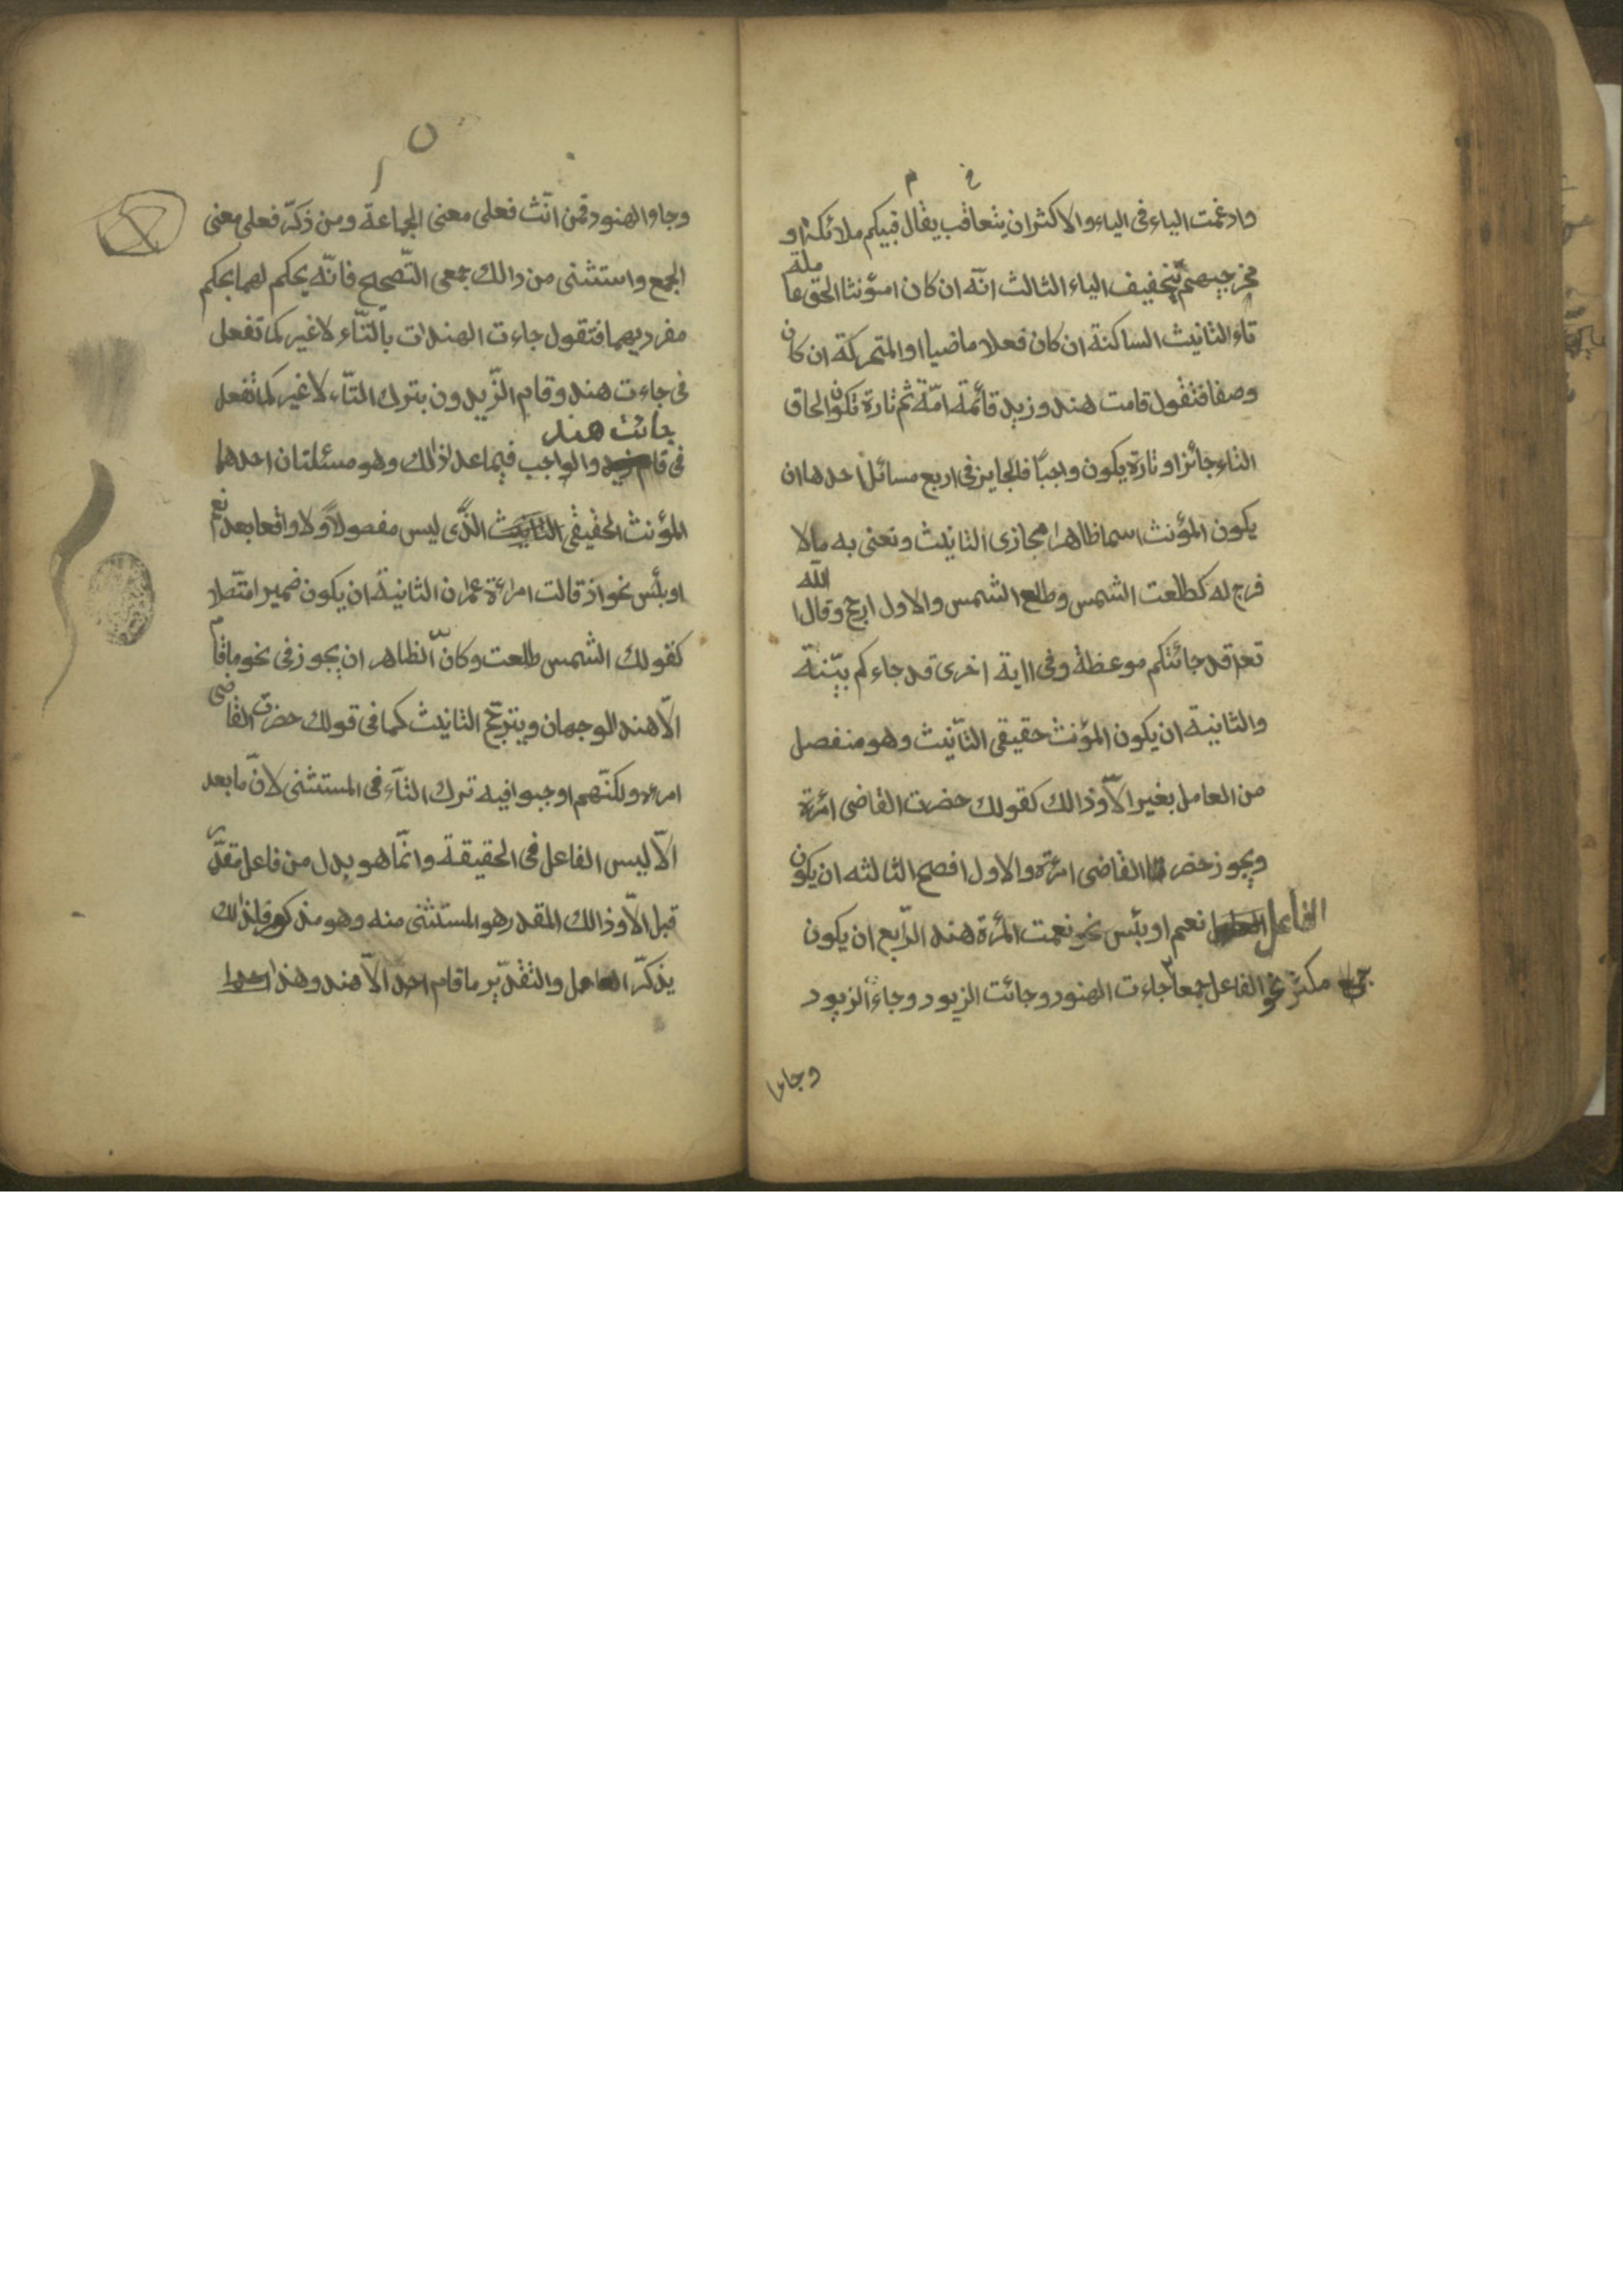 وادغمت الياء فى الياء والاكثر ان يتعاقب يقال فيكم ملائكة او
مخرجيهم بتخفيف الياء الثالث انّه ان كان مؤنثا الحق عا
مله
تاء التانيث الساكنة ان كان فعلا ماضيا او المتحركة ان كان
وصفا فتقول قامت هند وزيد قائمة امّه ثم تارة تكون الحاق
التاء جائزا وتارة يكون واجبًا فالجايز فى اربع مسائل احدها ان
يكون المؤنث اسما ظاهرا مجازى التانيث ونعنى به مالا
فرج له كطلعت الشمس وطلع الشمس والاول ارجح وقال الله
تعا قد جائتكم موعظة وفى اية اخرى قد جاءكم بيّنة
والثانية ان يكون المؤنث حقيقى التّانيث وهو منفصل
من العامل بغير الاّ وذالك كقولك حضرت القاضى امرئة
ويجوز حضر القاضى امرئة والاول افصح الثالثه ان يكون
الفاعل نعم او بئس نحو نعمت المرئة هند الرّابع ان يكون
مكثر نحو الفاعل جمعا جاءت الهنود وجائت الزيود وجاء الزيود
وجاء
وجاء الهنود فمن انّث فعلى معنى الجماعة ومن ذكّر فعلى معنى
الجمع واستثنى من ذالك جمعى التّصحيح فانّه يحكم لهما بحكم
مفرديهما فتقول جاءت الهندات بالتّاء لا غير كما تفعل
فى جاءت هند وقام الزّيدون بترك التّاء لا غير كما تفعل
جائت هند
فى قام والواجب فيما عدا ذالك وهو مسئلتان احدهما
المؤنث الحقيقى التانيث الّذى ليس مفصولا ولا واقعا بعد نعم
او بئس نحو اذ قالت امرائة عمران الثانية ان يكون ضميرا متّصلا
كقولك الشمس طلعت وكانّ الظاهر ان يجوز فى نحو ما قام
الاّ هند الوجهان ويترجّح التانيث كما فى قولك حضرت القاضى
امرءة ولكنّهم اوجبوا فيه ترك التّاء فى المستثنى لانّ ما بعد
الاّ ليس الفاعل فى الحقيقة وانّما هو بدل من فاعل مقدّر
قبل الاّ وذالك المقدر هو المستثنى منه وهو مذكور فلذالك
يذكّر العامل والتقدير ما قام احد الاّ هند وهذا احد